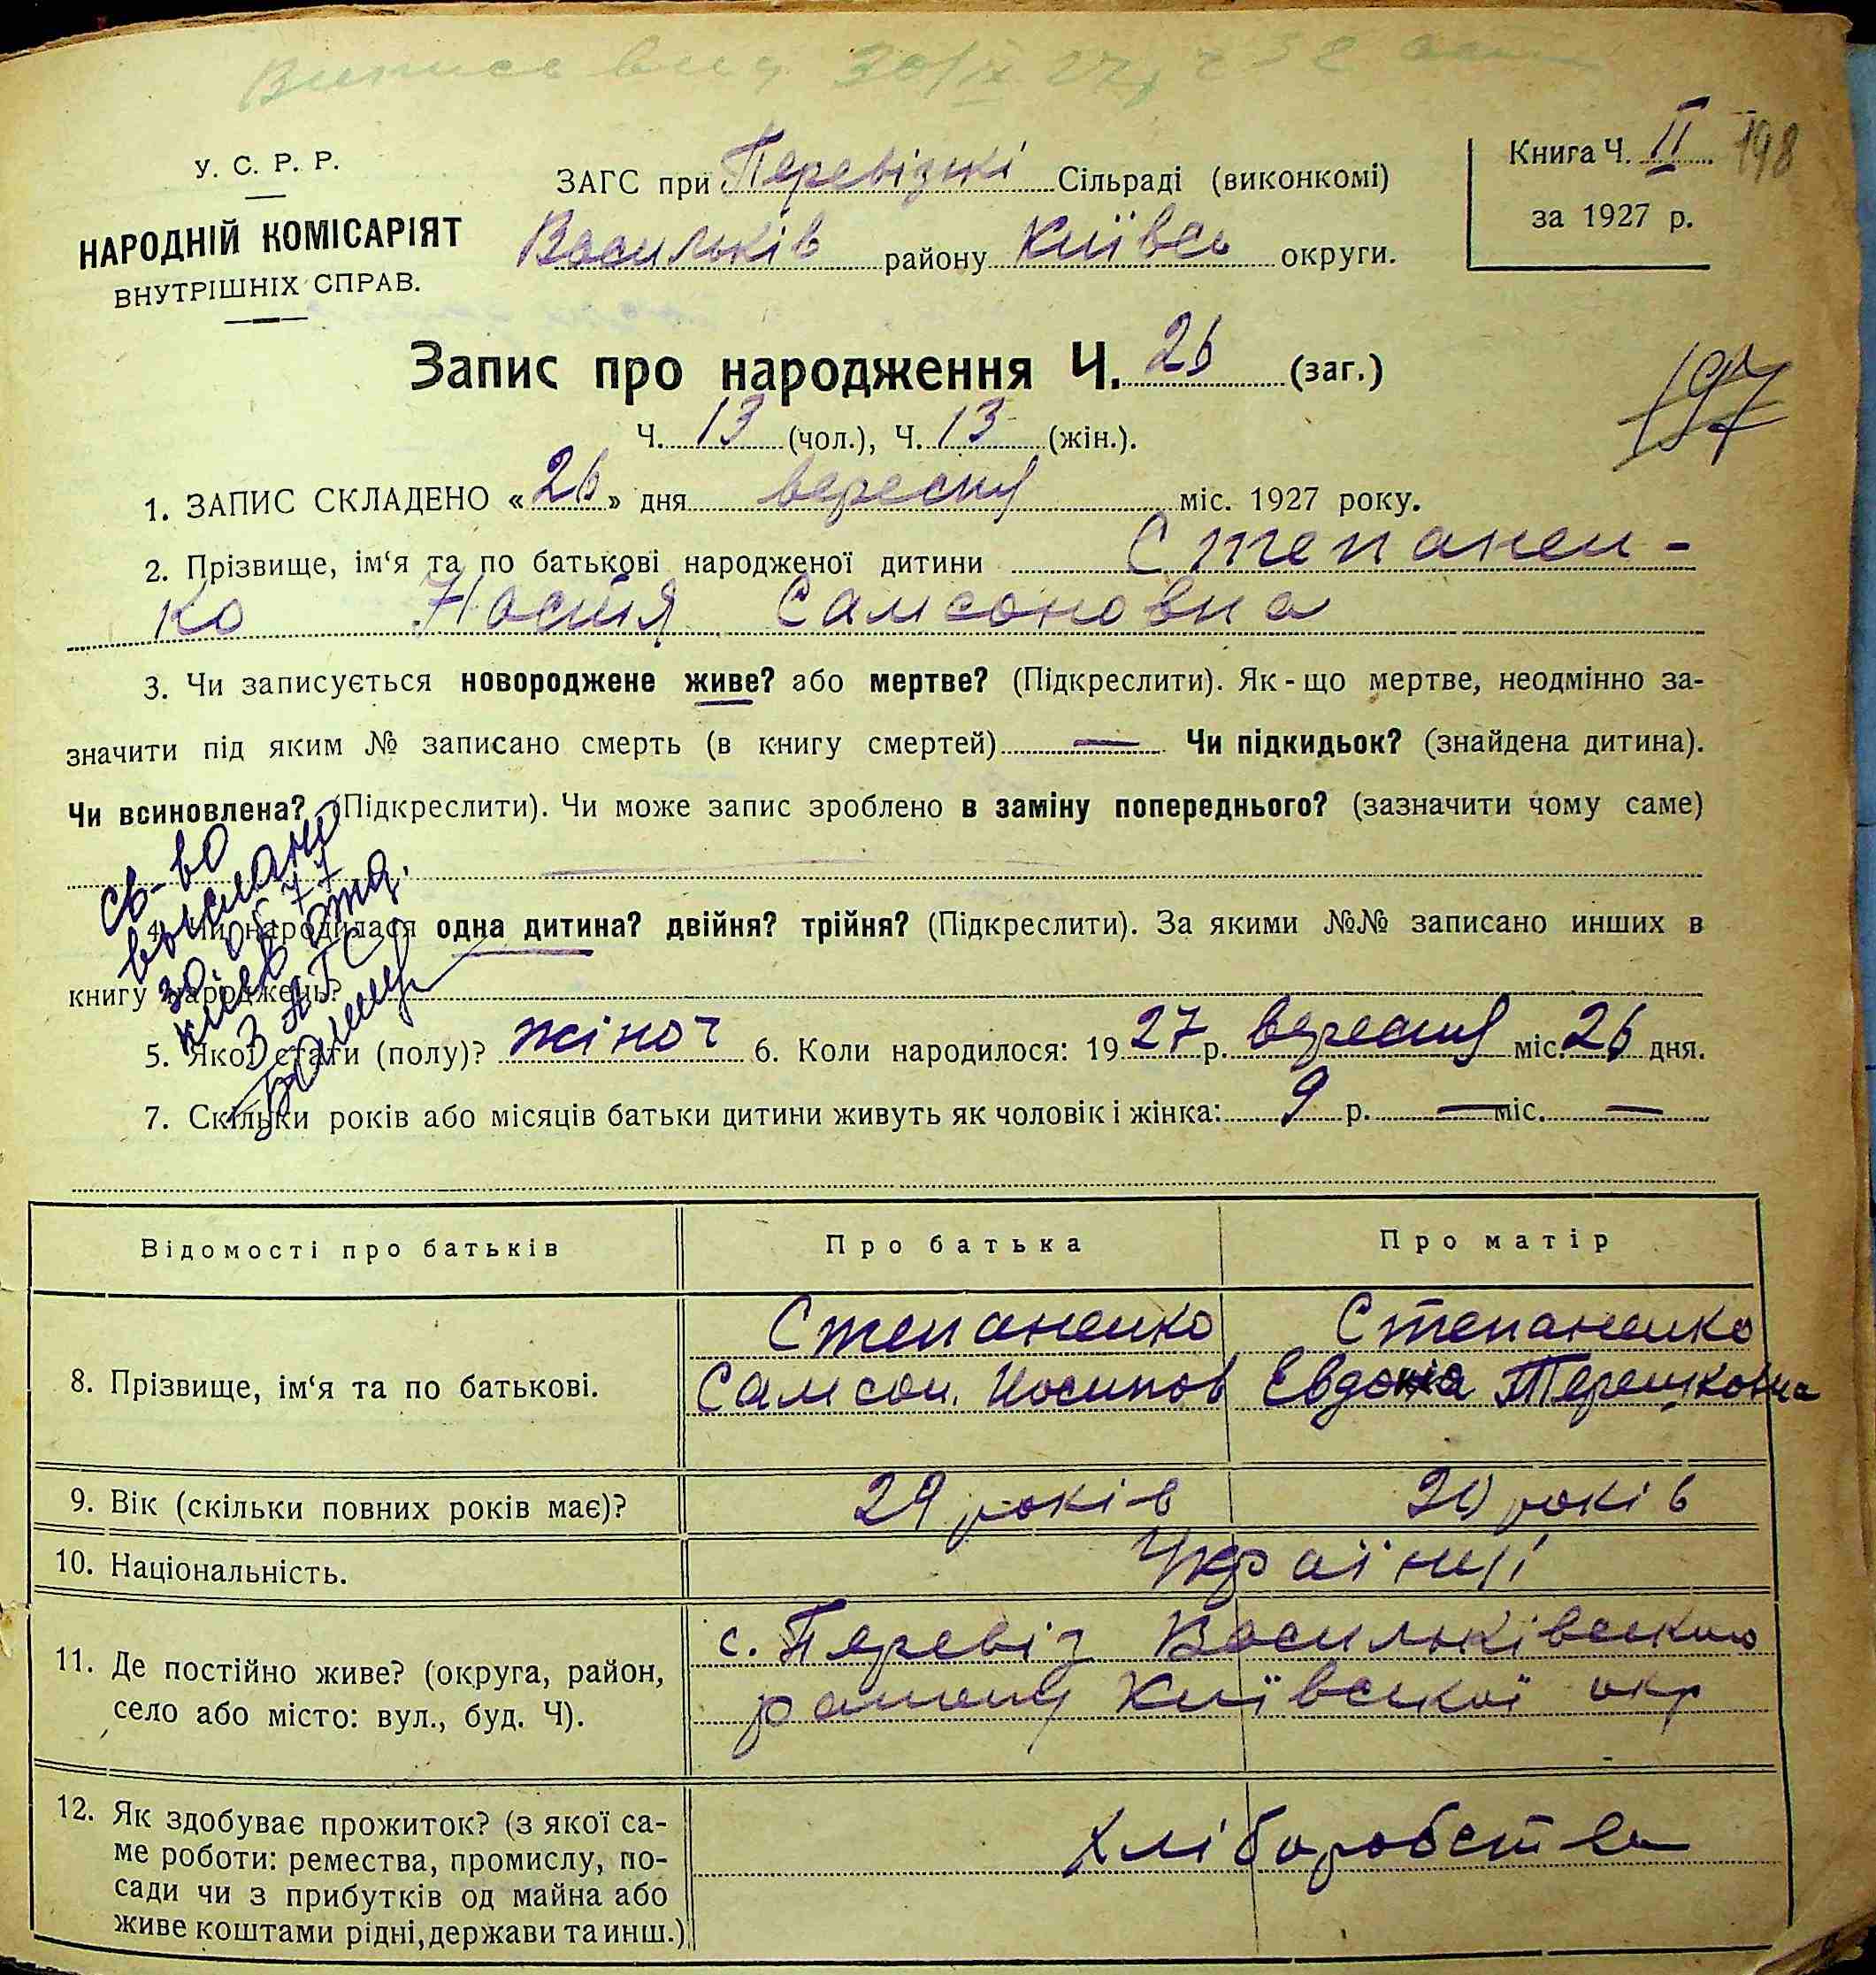 30/IX 27
У. С. Р. Р.
НАРОДНІЙ КОМІСАРІЯТ
ВНУТРІШНІХ СПРАВ.
ЗАГС при Перевізькі Сільраді (виконкомі)
Васильків району Київсь округи.
Книга Ч. II 198
за 1927 р.
Запис про народження Ч. 26 (заг.)
197
Ч. 13 (чол.), Ч. 13 (жін.).
1. ЗАПИС СКЛАДЕНО «26» дня вересня міс. 1927 року.
2. Прізвище, ім‘я та по батькові народженої дитини Степанен-
ко Настя Самсоновна
3. Чи записується новороджене живе? або мертве? (Підкреслити). Як-що мертве, неодмінно за-
значити під яким № записано смерть (в книгу смертей) — Чи підкидьок? (знайдена дитина).
Чи всиновлена? (Підкреслити). Чи може запис зроблено в заміну попереднього? (зазначити чому саме)
св-во
выслано
30. 06 77
киев отд.
ЗАГС
4. Чи народилася одна дитина? двійня? трійня? (Підкреслити). За якими №№ записано инших в
книгу народжень?
5. Якої стати (полу)? жіноч 6. Коли народилося: 1927 р. вересня міс. 26 дня.
7. Скільки років або місяців батьки дитини живуть як чоловік і жінка: 9 р. — міс. —
Відомості про батьків Про батька Про матір
8. Прізвище, ім‘я та по батькові.
Степаненко
Самсон. Иосипов
Степаненко
Евдокіа Терешковна
9. Вік (скільки повних років має)? 29 років 29 років
10. Національність. Українці
11. Де постійно живе? (округа, район,
село або місто: вул., буд. Ч).
с. Перевіз Васильківського
району Київської окр
12. Як здобуває прожиток? (з якої са-
ме роботи: ремества, промислу, по-
сади чи з прибутків од майна або
живе коштами рідні, держави та инш.)
Хліборобство